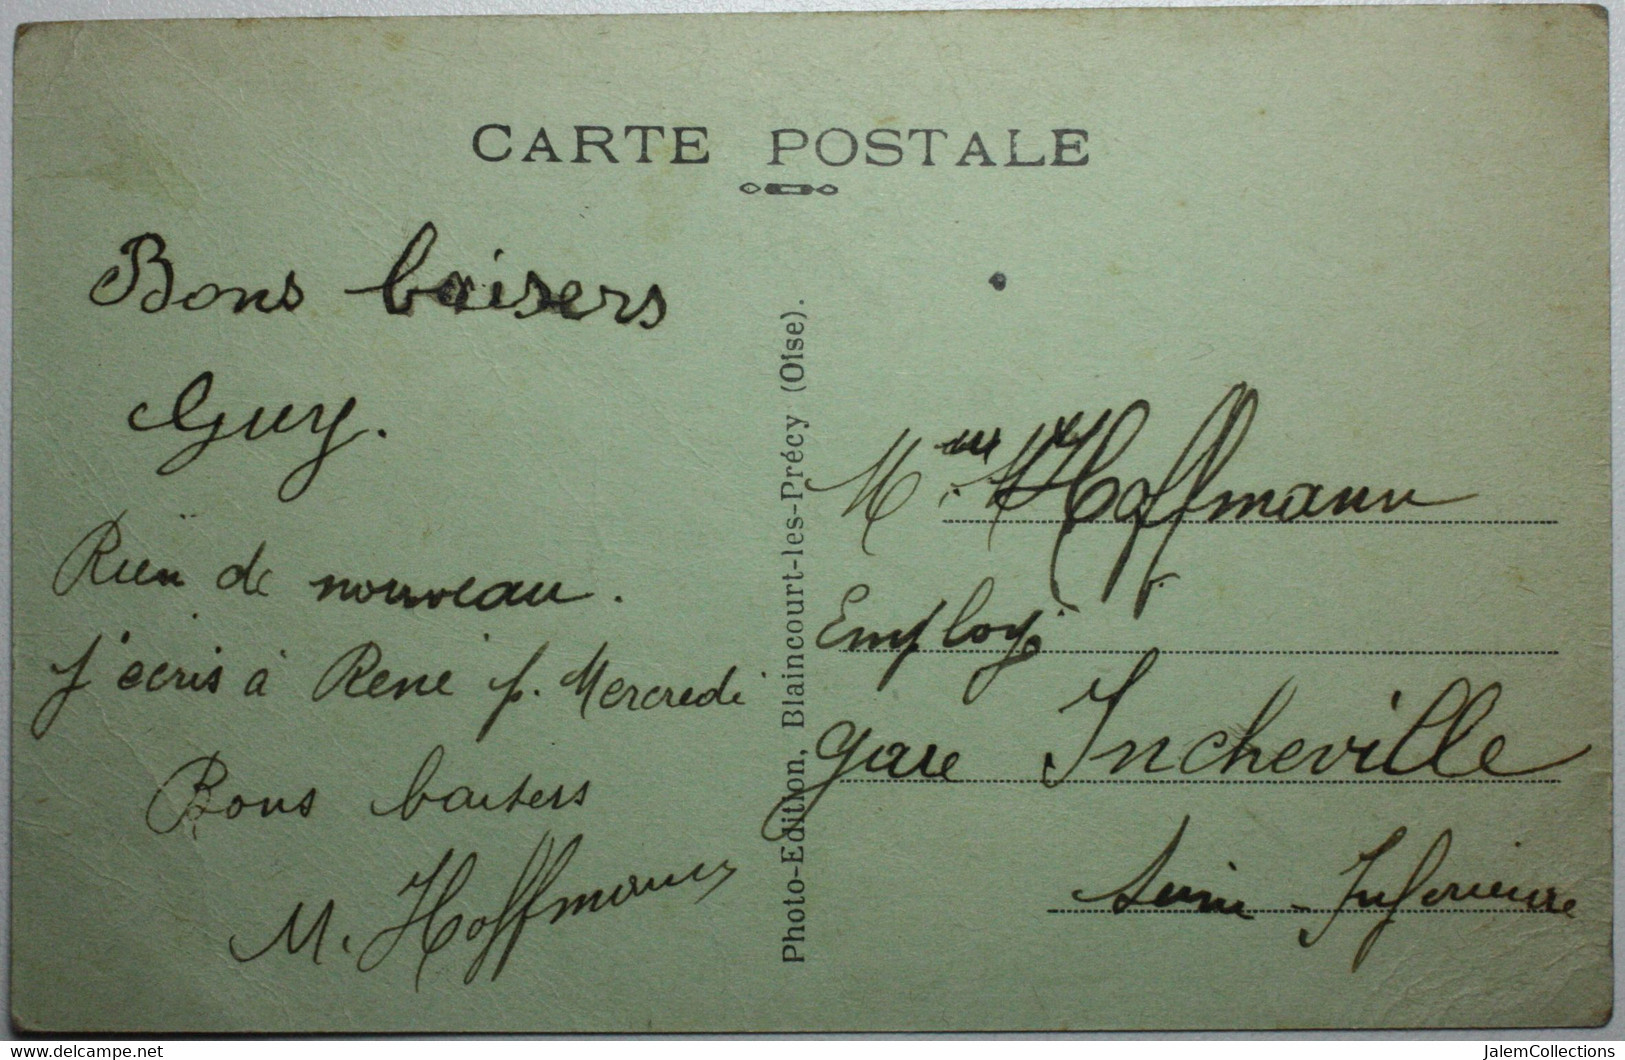 CARTE POSTALE
Bons baisers
Guy.
Rien de nouveau.
J'écris à René p. Mercredi
Bons baisers
M. Hoffmann
Photo-Edition, Blaincourt-les-Précy (Oise).
Hoffmann
Employé
gare Incheville
Seine-Inférieure
delcampe.net
JalemCollections